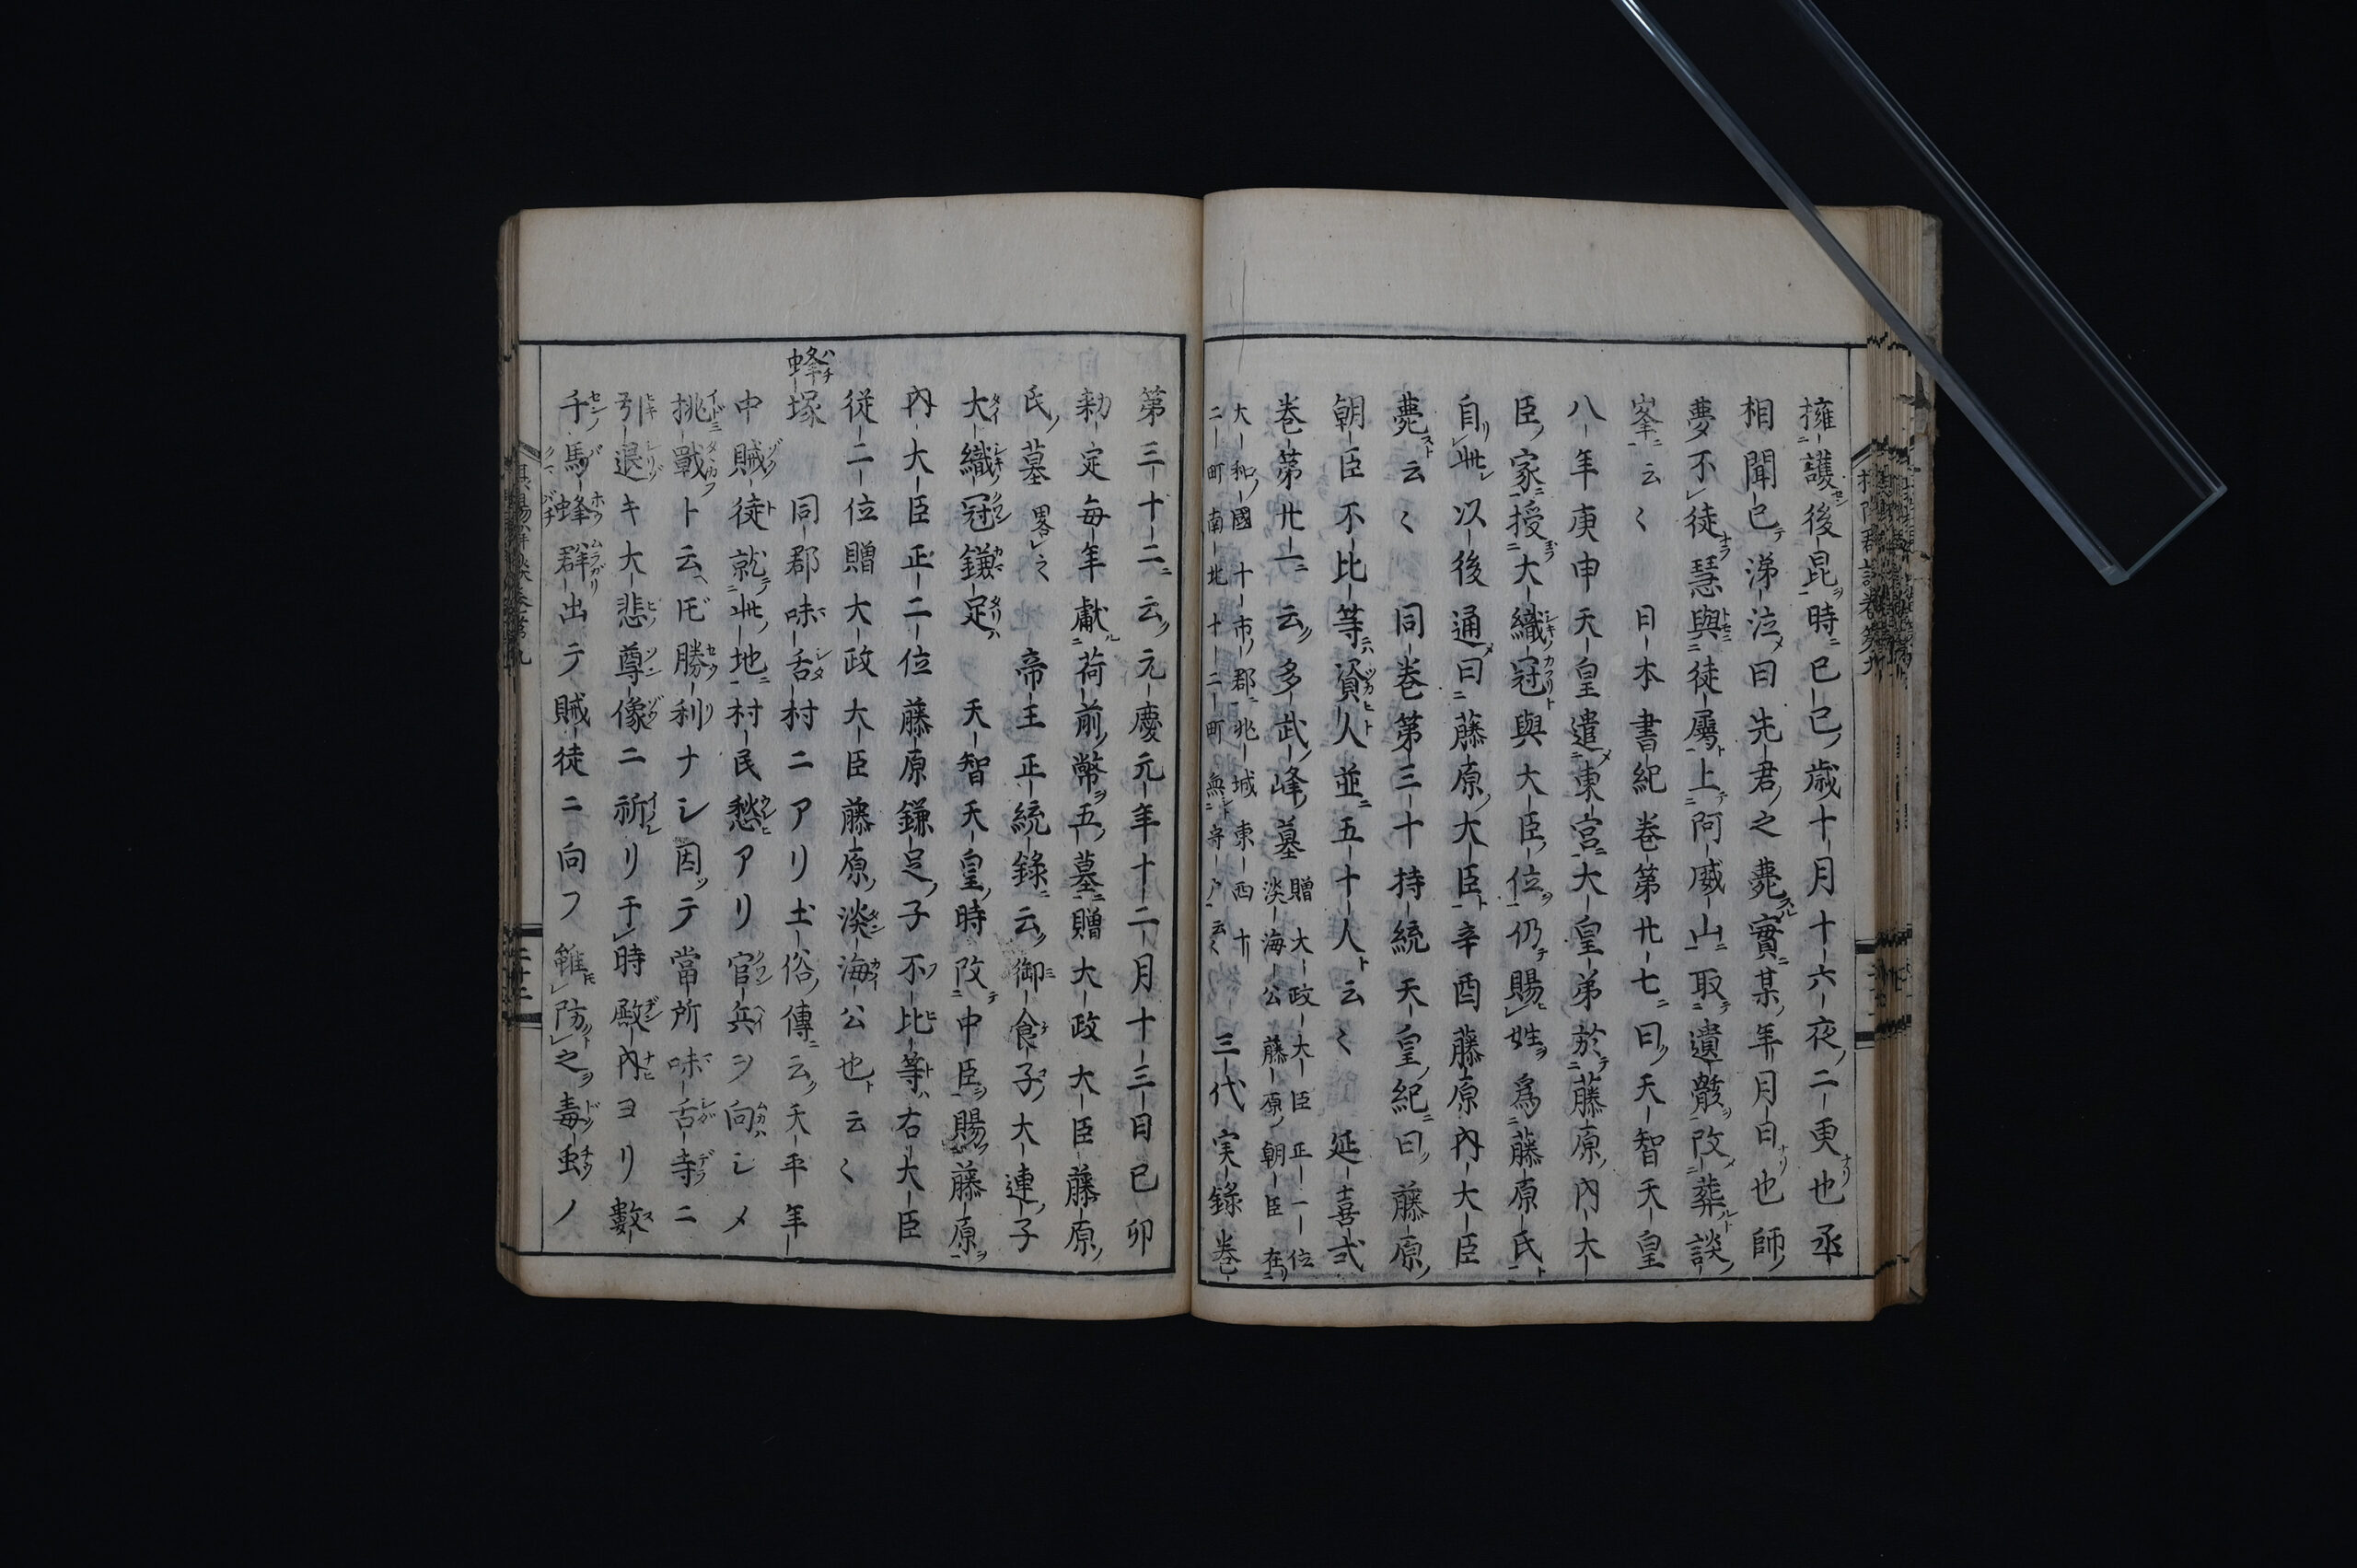 擁護後昆時巳巳歳十月十六夜二更也丞
相聞已涕泣曰先君之薨實某年月日也師
夢不徒慧與徒屬上阿威山取遺骸改葬談
峯云々 日本書紀巻第廿七曰天智天皇
八年庚申天皇遣東宮大皇弟於藤原内大
臣家授大織冠與大臣位仍賜姓爲藤原氏
自此以後通曰藤原大臣辛酉藤原内大臣
薨云々 同巻第三十持統天皇紀曰藤原
朝臣不比等資人並五十人云々 延喜式
巻第廿一云多武峰墓 贈大政大臣正一位
淡海公藤原朝臣在
大和國十市郡兆城東西十
二町南北十二町無守戸云々
三代実録巻
第三十二云元慶元年十二月十三日己卯
勅定毎年獻荷前幣五墓贈大政大臣藤原
氏墓 畧之 帝王正統録云御食子大連子
大織冠鎌足 天智天皇時改中臣賜藤原
内大臣正二位藤原鎌足子不比等右大臣
従二位贈大政大臣藤原淡海公也云々
蜂塚 同郡味舌村ニアリ土俗傳云天平年
中賊徒就此地村民愁アリ官兵ヲ向シメ
挑戰ト云𪜈勝利ナシ因テ當所味舌寺ニ
引退キ大悲尊像ニ祈リ于時殿内ヨリ數
千馬蜂群出テ賊徒ニ向フ雖防之毒虫ノ